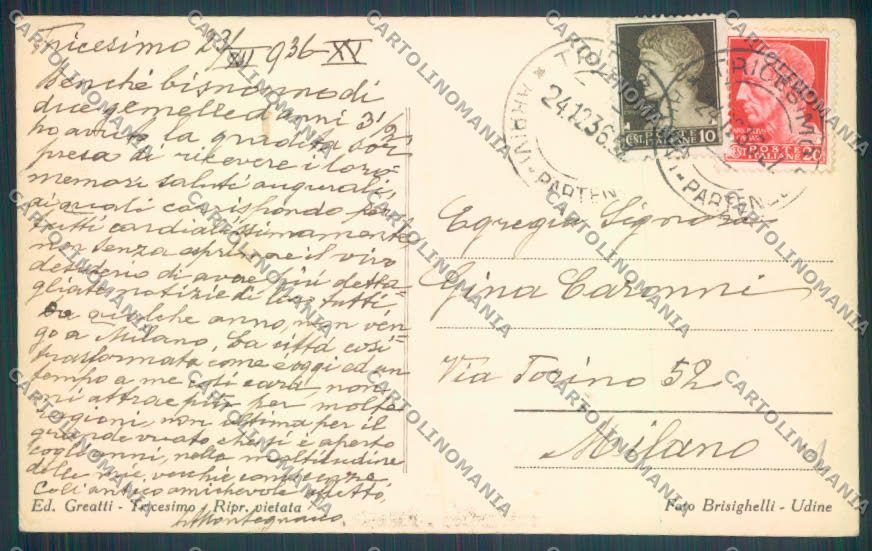 Tricesimo 23/XII 936-XV
Benché bisnonno di
due gemelle d'anni 3 1/2
ho avuto la gradita sor
presa di ricevere i loro
memori saluti augurali,
ai quali corrispondo per
tutti cordialissimamente
non senza esprimere il vivo
desiderio di avere più detta-
gliate notizie di loro tutti
Da qualche anno, non ven
go a Milano. La città così
trasformata come è oggi ed un
tempo a me così cara, non
mi attrae più per molte
ragioni, non ultima per il
grande vuoto, che si è aperto
cogli anni, nella moltitudine
delle mie vecchie conoscenze
Coll'antico amichevole affetto,
Ed. Greatti - Tricesimo - Ripr. vietata
Foto Brisighelli - Udine
Egregia Signora
Gina Caronni
Via Torino 52
Milano
24.12.36
PARTENZ
POSTE
ITALIANE 10
TRICESIMO
PARTENZ
POSTE
ITALIANE 20
CARTOLINOMANIA